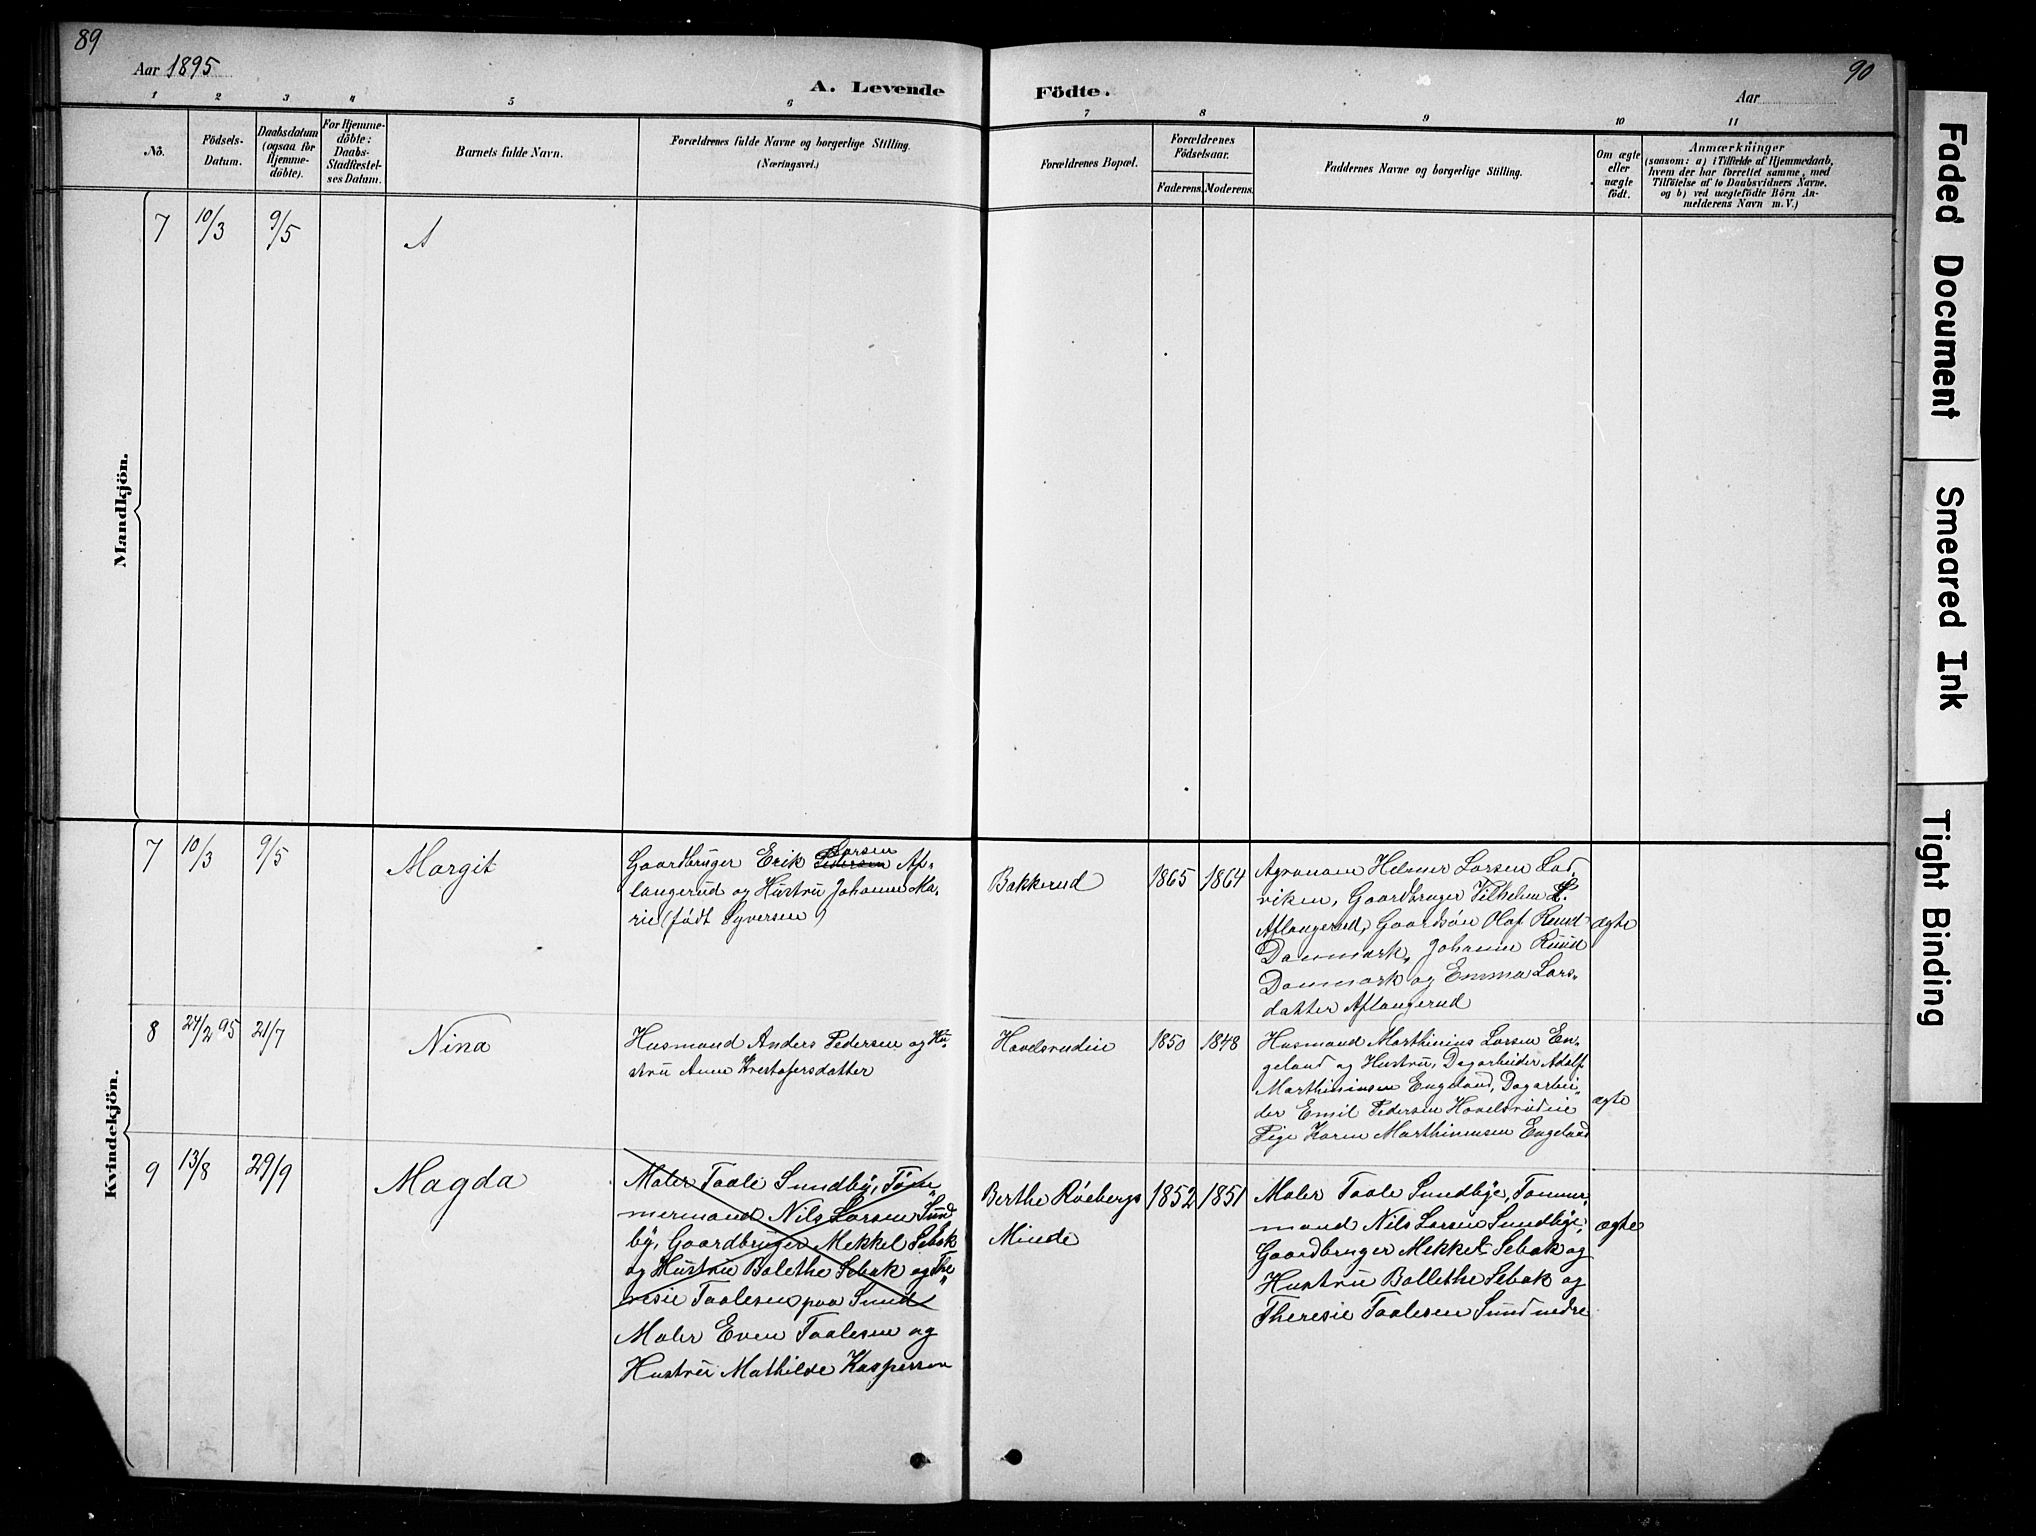 89
Aar 1895
A. Levende
Födte.
Aar
90
1 2 3 4 5 6 7 8 9 10 11
No.
Födsels-
Datum.
Daabsdatum
(ogsaa for
Hjemme-
döbte).
For Hjemme-
döbte:
Daabs-
Stadfæstel-
ses Datum.
Barnets fulde Navn.
Forældrenes fulde Navne og borgerlige Stilling.
(Næringsvei.)
Forældrenes Bopæl.
Forældrenes
Födselsaar.
Faderens. Moderens.
Faddernes Navne og borgerlige Stilling.
Om ægte
eller
uægte
födt.
Anmærkninger
(saasom: a) i Tilfælde af Hjemmedaab,
hvem der har forrettet samme, med
Tilföielse af to Daabsvidners Navne.
og b) ved uægtefödte Börn An-
melderens Navn m. V.)
Mandkjön.
7 10/3 9/5 A
Kvindekjön.
7 10/3 9/5
Margit
Larsen
Gaardbruger Erik Pedersen Af-
langerud og Hustru Johanne Ma-
rie (født Syversen)
Bakkerud
1865 1864
Agronom Helmer Larsen Lad-
viken, Gaardbruger Vilhelm L.
Aflangerud, Gaardsøn Olaf Knud
Danmark, Johanne Knud
Danmark og Emma Lars-
datter Aflangerud
ægte
8 24/2 95 21/7
Nina
Husmand Anders Pedersen og Hu-
stru Anne Krestofersdatter
Hovelsrudeie
1850 1848
Husmand Marthinius Larsen En-
geland og Hustru, Dagarbeider Adolf
Marthiniusen Engeland, Dagarbei-
der Emil Pedersen Hovelsrudeie
Pige Karen Marthinusen Engeland
ægte
9 13/8 29/9
Magda
Maler Taale Sundby, Tøm-
mermand Nils Larsen Sund
by, Gaardbruger Mekkel Sebak
og Hustru Bolethe Sebak og The-
resie Taalesen paa Sund
Maler Even Taalesen og
Hustru Mathilde Kaspersen
Berthe Røebergs
Minde
1852 1851
Maler Taale Sundbye, Tømmer-
mand Nils Larsen Sundbye,
Gaardbruger Mekkel Sebak og
Hustru Bollethe Sebak og
Theresie Taalesen Sund nedre
ægte
Faded Document
Smeared Ink
Tight Binding